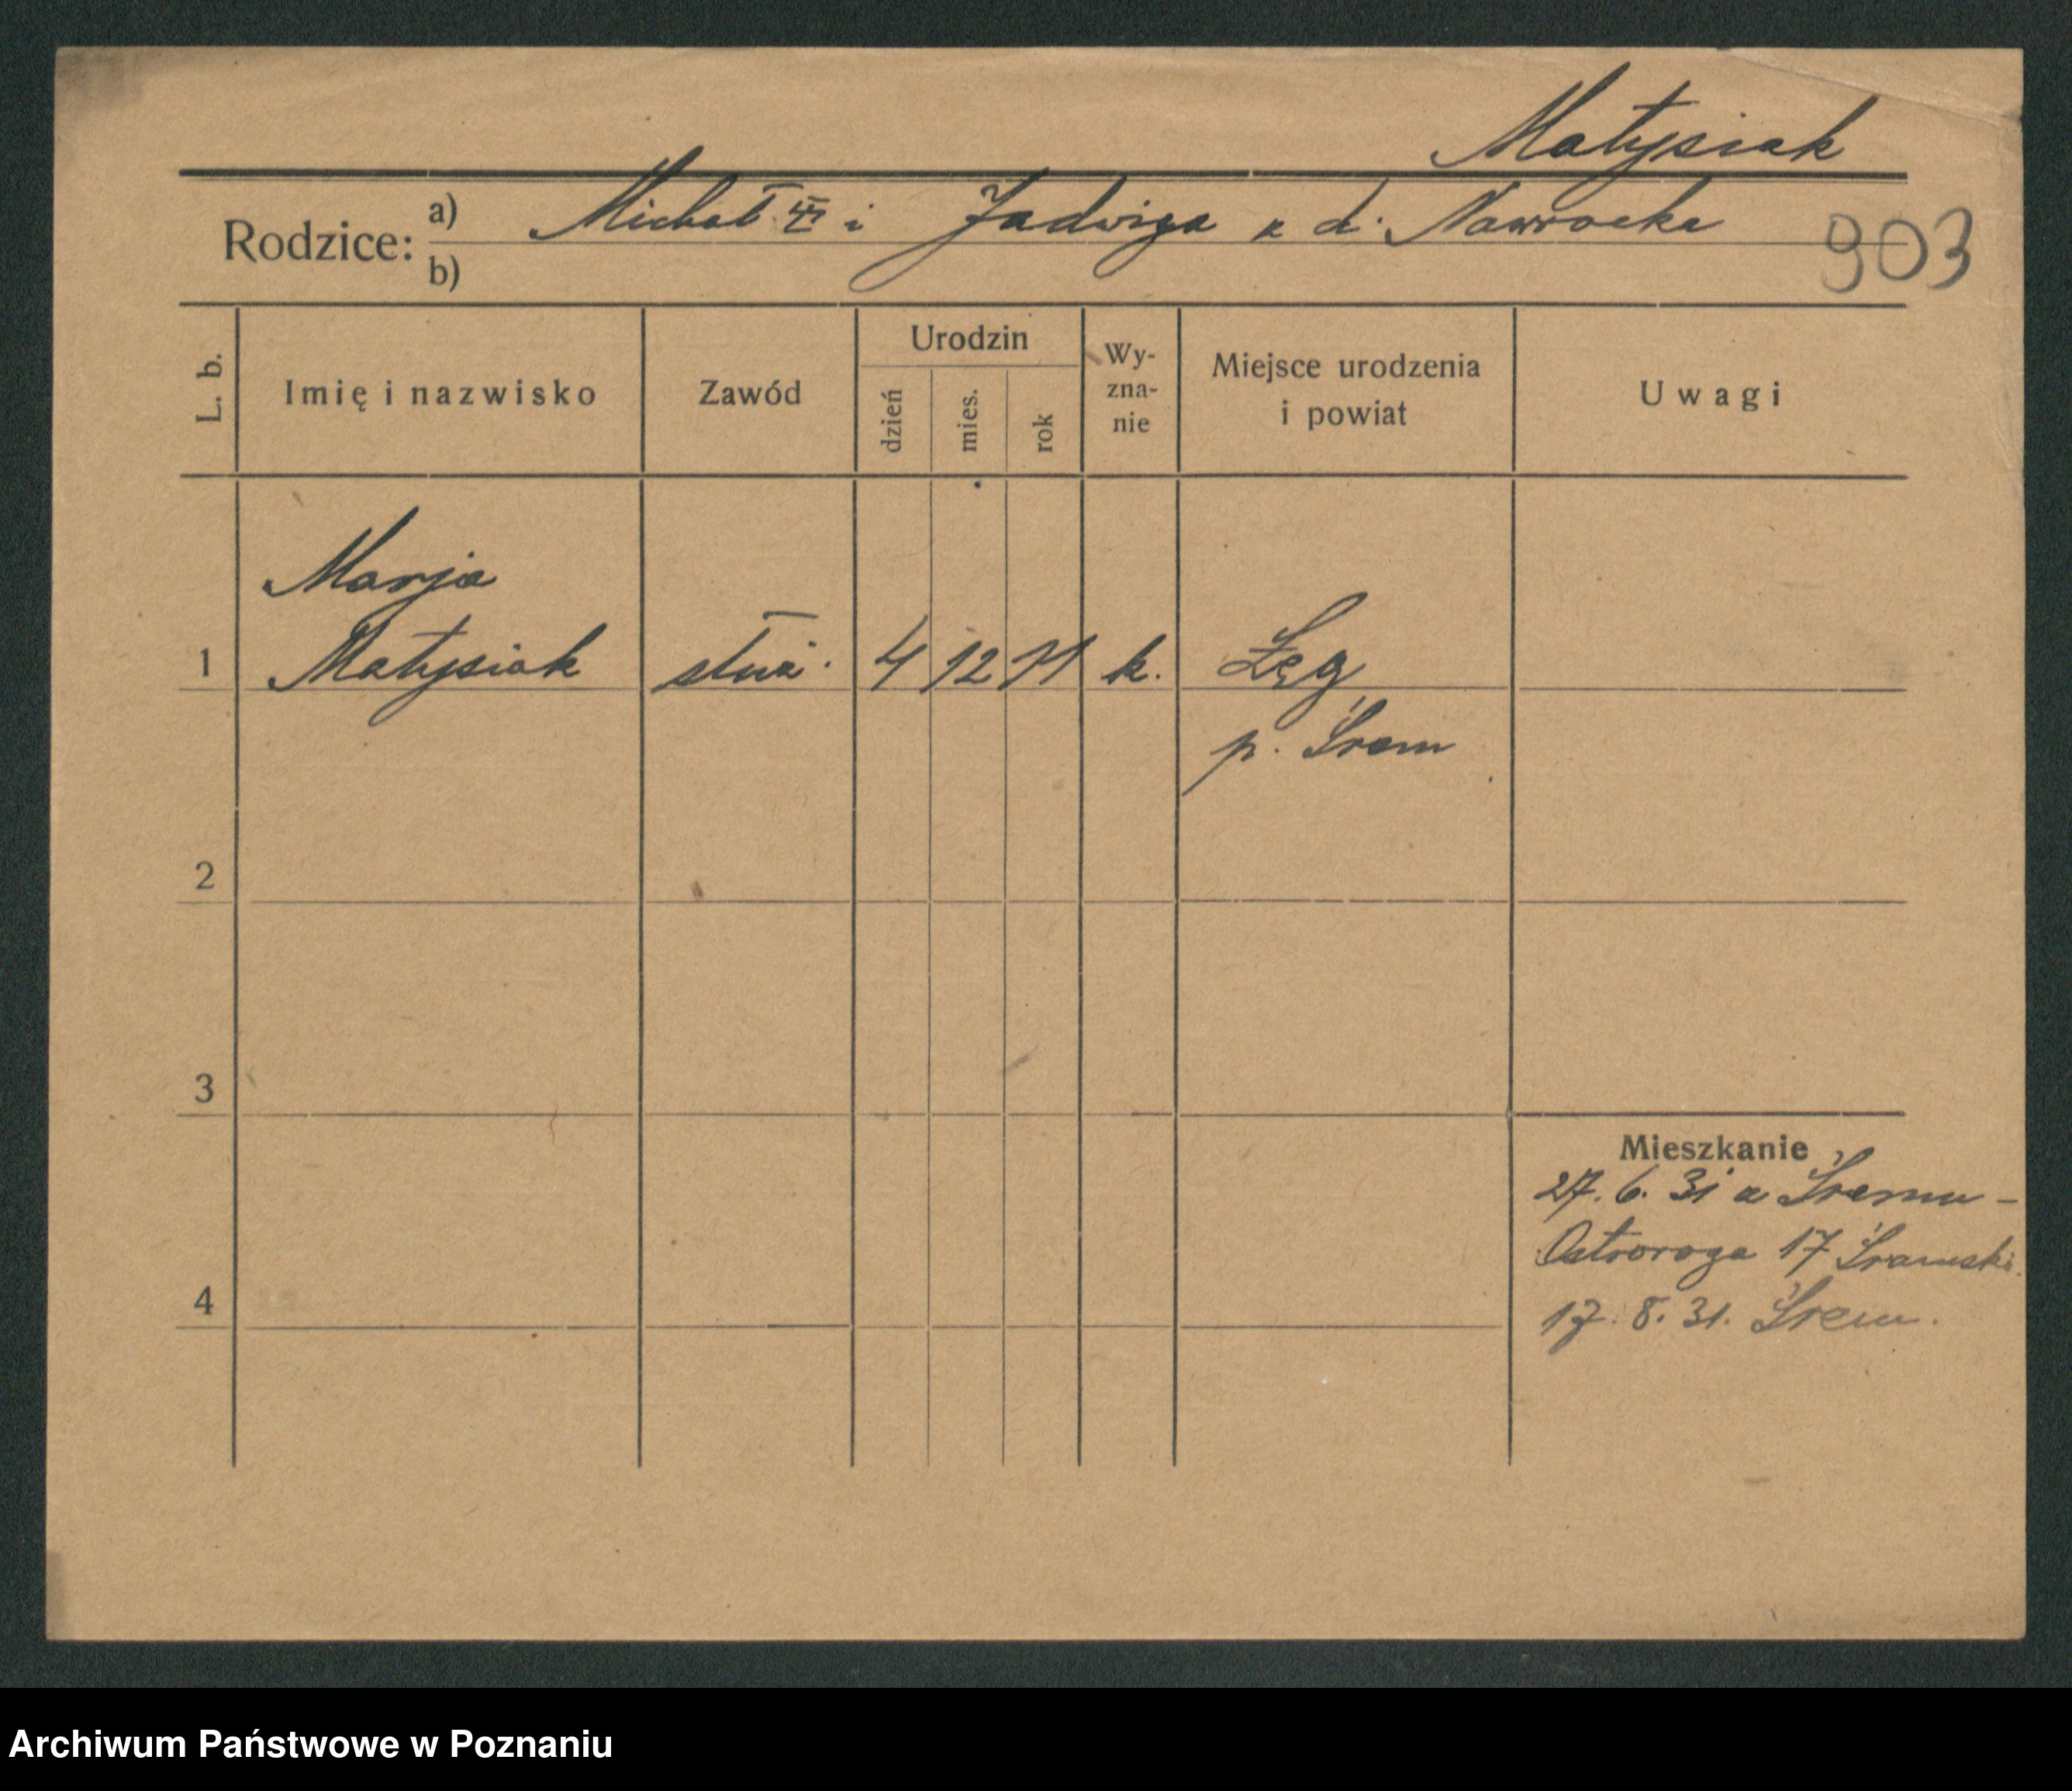 Matysiak
Rodzice: a) Michał i Jadwiga z d. Nawrocka
b)
903
L. b.
Imię i nazwisko
Zawód
Urodzin
dzień
mies.
rok
Wy-
zna-
nie
Miejsce urodzenia
i powiat
Uwagi
Marja
1 Matysiak służ. 4 12 11 k. Łęg
p. Śrem
2
3
Mieszkanie
27. 6. 31 z Śremu -
Ostroroga 17 Sramski.
4
17. 8. 31. Śrem.
Archiwum Państwowe w Poznaniu